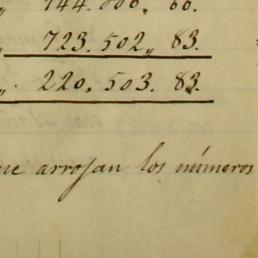 „ 144.000„ 60.
„ 723.502„ 83.
„. 220.503. 83.
que arrojan los números